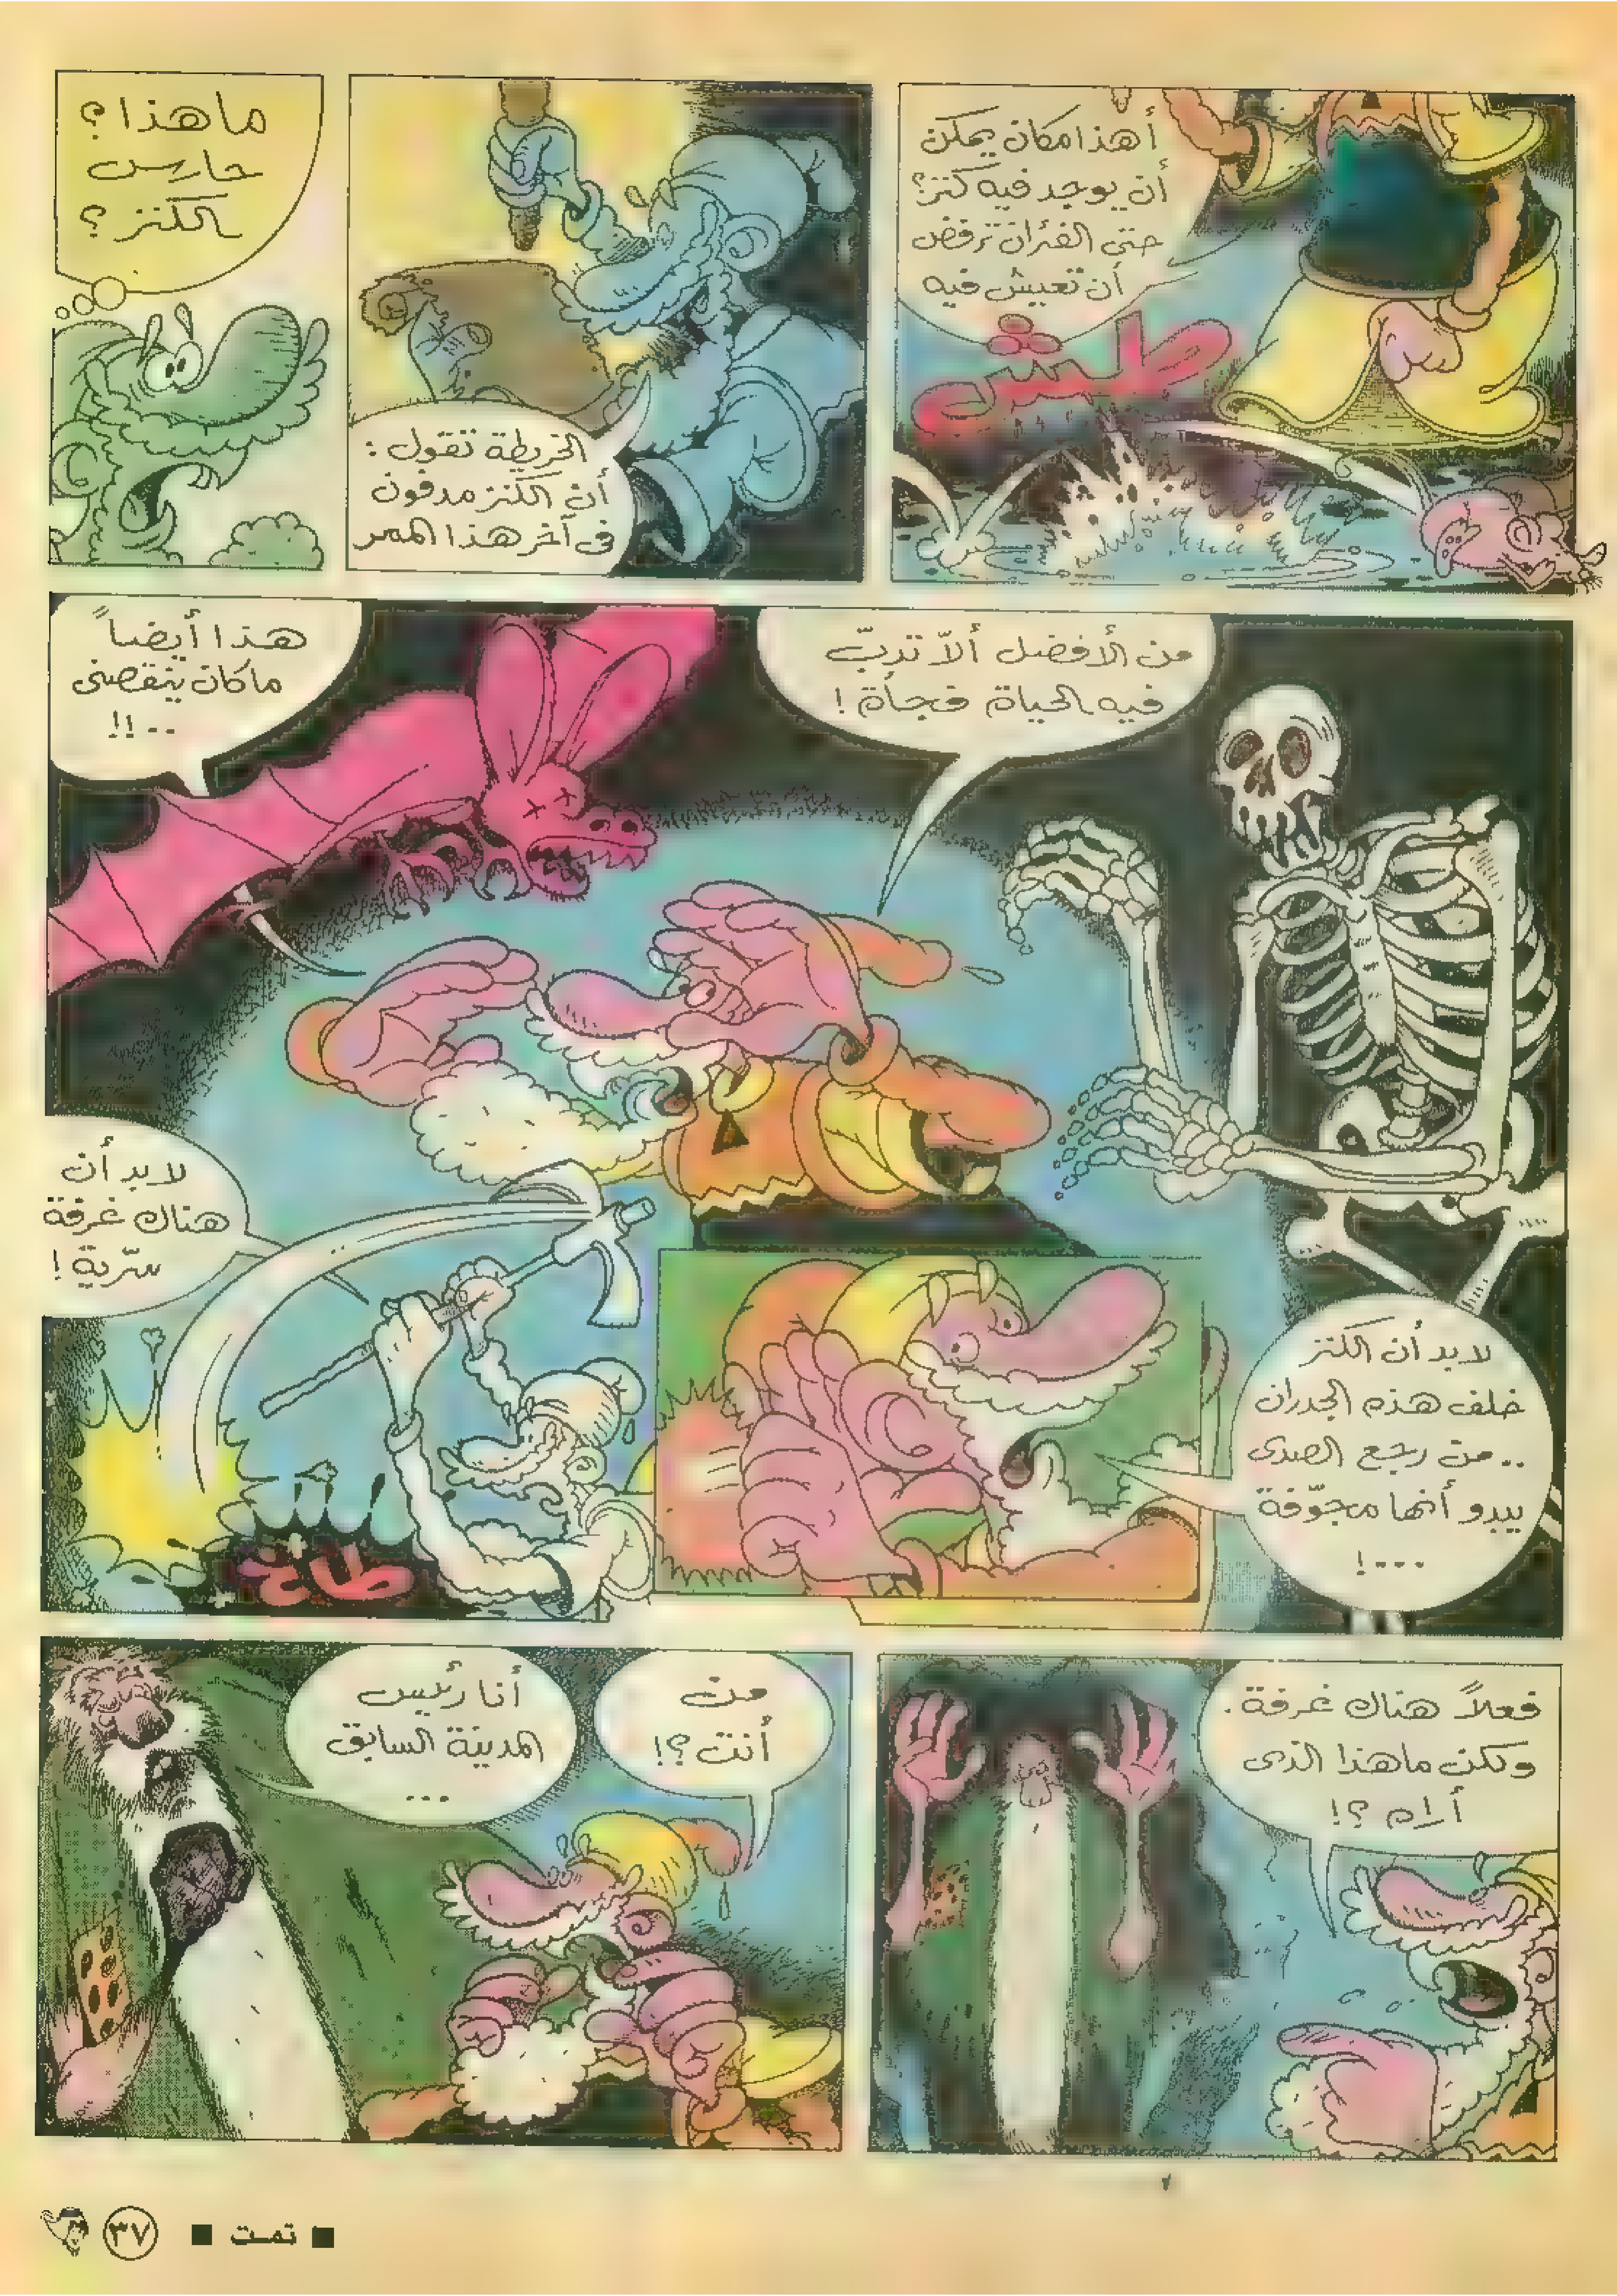 أهذا مكان يمكن
أن يوجد فيه كنز؟
حتى الفئران ترفض
أن تعيش فيه
طش
الخريطة تقول :
أن الكنز مدفون
في آخر هذا الممر
ما هذا ؟
حارس
الكنز ؟
من الأفضل ألاّ تدبّ
فيه الحياة فجأة !
هذا أيضاً
ما كان ينقصني
..!!
لا بد أن الكنز
خلف هذه الجدران
.. من رجع الصدى
يبدو أنها مجوّفة
...!
لا بد أن
هناك غرفة
سرّية !
طاخ
فعلاً هناك غرفة .
ولكن ما هذا الذي
أراه ؟!
من
أنت ؟!
أنا رئيس
المدينة السابق
...
■ تمت ■
٣٧